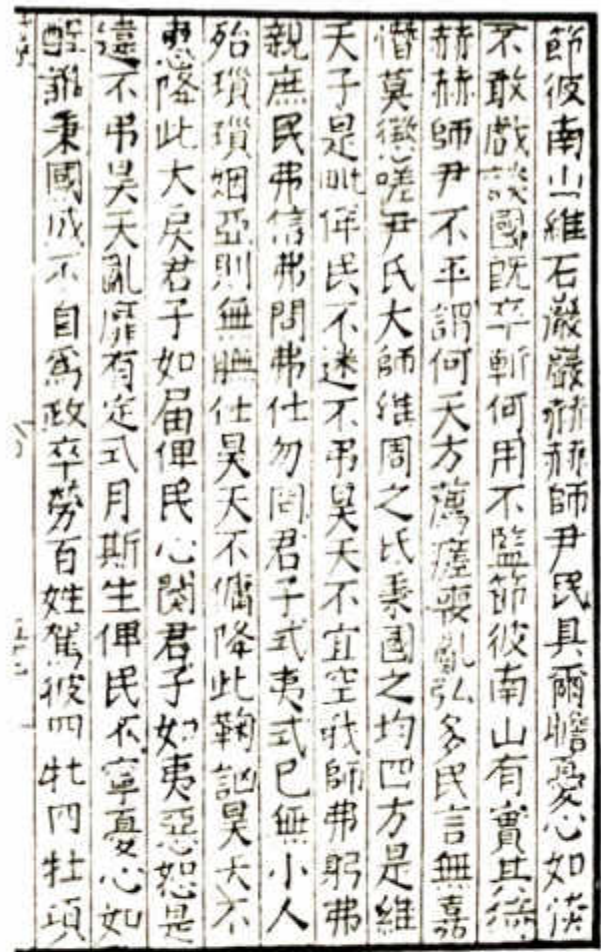 節彼南山維石巖巖赫赫師尹民具爾瞻憂心如惔
不敢戲談國既卒斬何用不監節彼南山有實其猗
赫赫師尹不平謂何天方薦瘥喪亂弘多民言無嘉
憯莫懲嗟尹氏大師維周之氐秉國之均四方是維
天子是毗俾民不迷不弔昊天不宜空我師弗躬弗
親庶民弗信弗問弗仕勿罔君子式夷式已無小人
殆瑣瑣姻亞則無膴仕昊天不傭降此鞠訩昊天不
惠降此大戾君子如届俾民心闋君子如夷惡怒是
違不弔昊天亂靡有定式月斯生俾民不寧憂心如
酲誰秉國成不自爲政卒勞百姓駕彼四牡四牡項